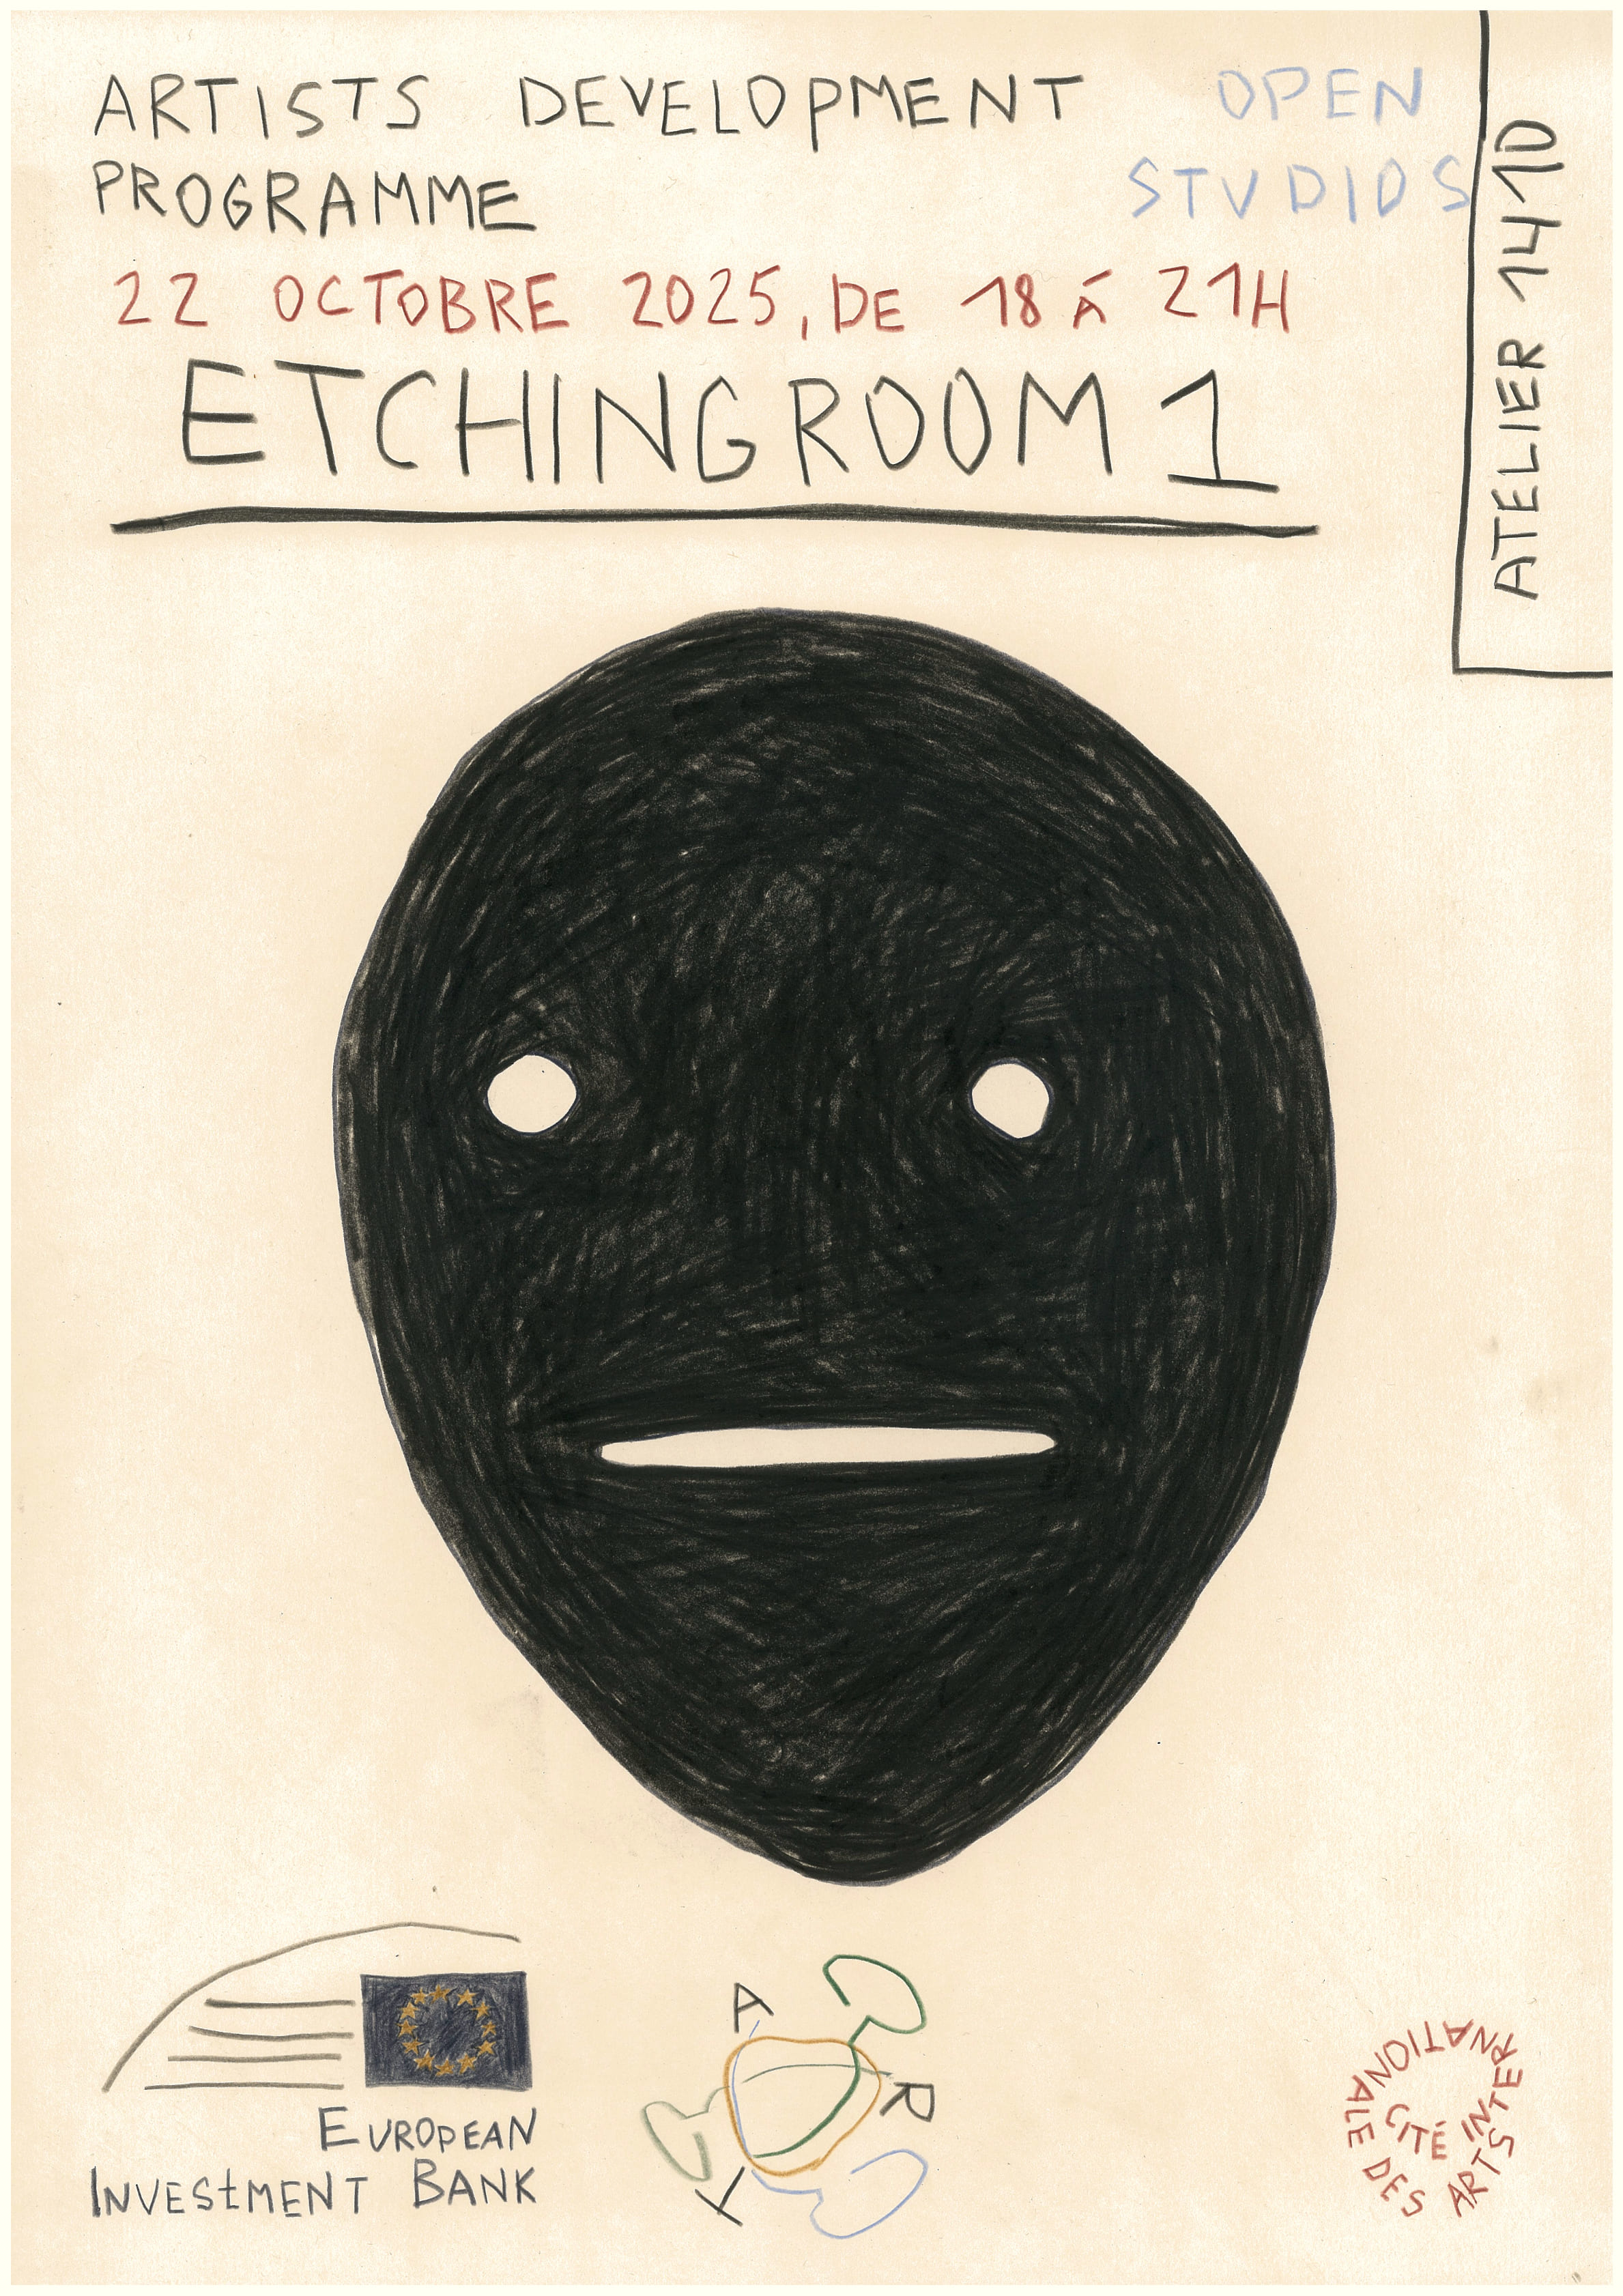 ARTISTS DEVELOPMENT
PROGRAMME
OPEN
STUDIOS
22 OCTOBRE 2025, DE 18 À 21H
ETCHINGROOM 1
ATELIER 1410
EUROPEAN
INVEStMENT BANK
A
R
T
CITÉ INTERNATIONALE DES ARTS